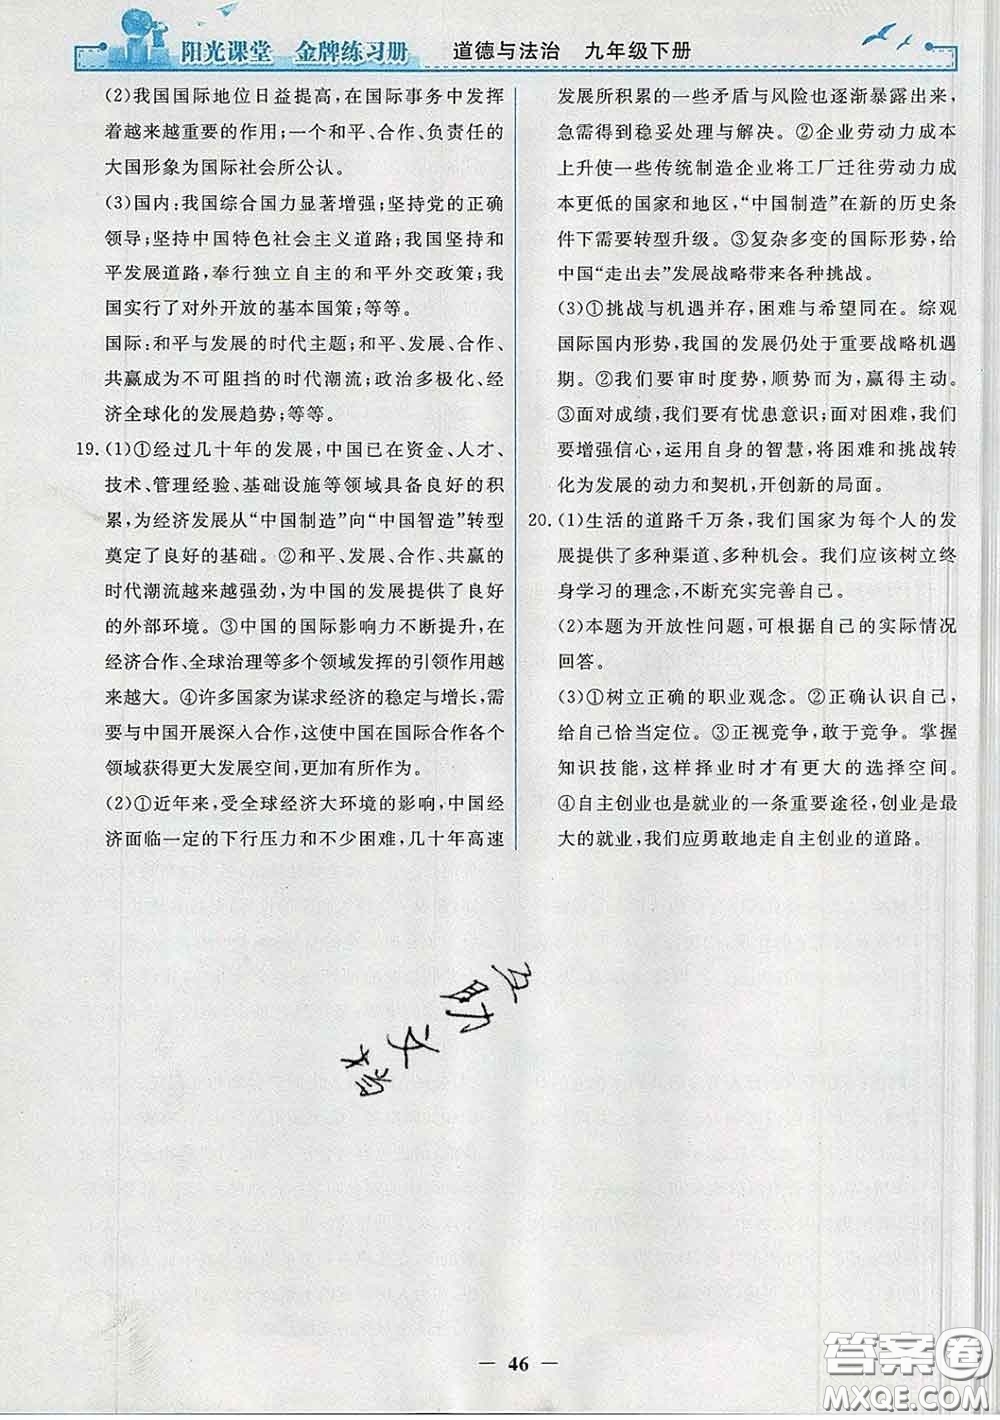 阳光课堂 金牌练习册 道德与法治 九年级下册
(2)我国国际地位日益提高,在国际事务中发挥
着越来越重要的作用;一个和平、合作、负责任的
大国形象为国际社会所公认。
(3)国内:我国综合国力显著增强;坚持党的正确
领导;坚持中国特色社会主义道路;我国坚持和
平发展道路,奉行独立自主的和平外交政策;我
国实行了对外开放的基本国策;等等。
国际:和平与发展的时代主题;和平、发展、合作、
共赢成为不可阻挡的时代潮流;政治多极化、经
济全球化的发展趋势;等等。
19.(1)①经过几十年的发展,中国已在资金、人才、
技术、管理经验、基础设施等领域具备良好的积
累,为经济发展从“中国制造”向“中国智造”转型
奠定了良好的基础。②和平、发展、合作、共赢的
时代潮流越来越强劲,为中国的发展提供了良好
的外部环境。③中国的国际影响力不断提升,在
经济合作、全球治理等多个领域发挥的引领作用越
来越大。④许多国家为谋求经济的稳定与增长,需
要与中国开展深入合作,这使中国在国际合作各个
领域获得更大发展空间,更加有所作为。
(2)①近年来,受全球经济大环境的影响,中国经
济面临一定的下行压力和不少困难,几十年高速
发展所积累的一些矛盾与风险也逐渐暴露出来,
急需得到稳妥处理与解决。②企业劳动力成本
上升使一些传统制造企业将工厂迁往劳动力成
本更低的国家和地区,“中国制造”在新的历史条
件下需要转型升级。③复杂多变的国际形势,给
中国“走出去”发展战略带来各种挑战。
(3)①挑战与机遇并存,困难与希望同在。综观
国际国内形势,我国的发展仍处于重要战略机遇
期。②我们要审时度势,顺势而为,赢得主动。
③面对成绩,我们要有忧患意识;面对困难,我们
要增强信心,运用自身的智慧,将困难和挑战转
化为发展的动力和契机,开创新的局面。
20.(1)生活的道路千万条,我们国家为每个人的发
展提供了多种渠道、多种机会。我们应该树立终
身学习的理念,不断充实完善自己。
(2)本题为开放性问题,可根据自己的实际情况
回答。
(3)①树立正确的职业观念。②正确认识自己,
给自己恰当定位。③正视竞争,敢于竞争。掌握
知识技能,这样择业时才有更大的选择空间。
④自主创业也是就业的一条重要途径,创业是最
大的就业,我们应勇敢地走自主创业的道路。
互助文档
— 46 —
答案圈
MXQE.COM